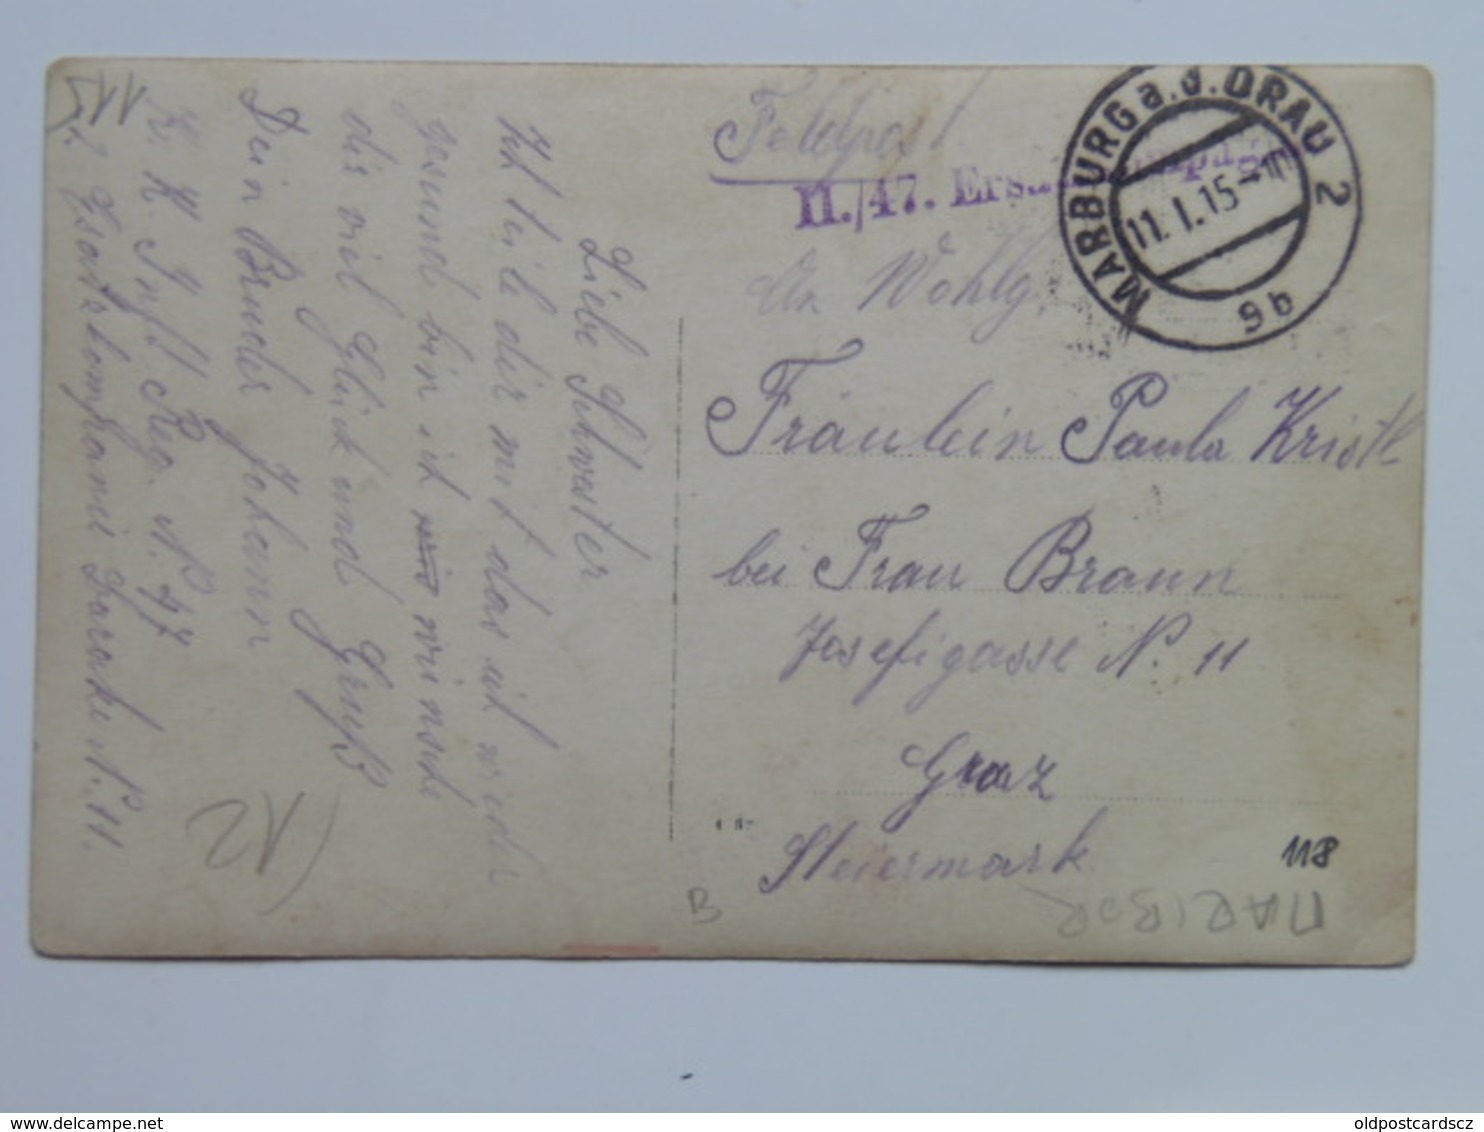 Feldpost
II./47. Ers
MARBURG a. d. DRAU 2
11. I. 15-10
9b
An Wohlg.
Fräulein Paula Kristl
bei Frau Braun
Josefigasse N. 11
Graz
Steiermark
Liebe Schwester
Ich teile dir mit das ich wieder
gesund bin ich wünsche
dir viel Glück und Gruß
Dein Bruder Johann
K. K. Inft. Reg. N. 47
Esatzkompanie Baracke N. 11.
12
B
118
MARIBOR
delcampe.net
oldpostcardscz